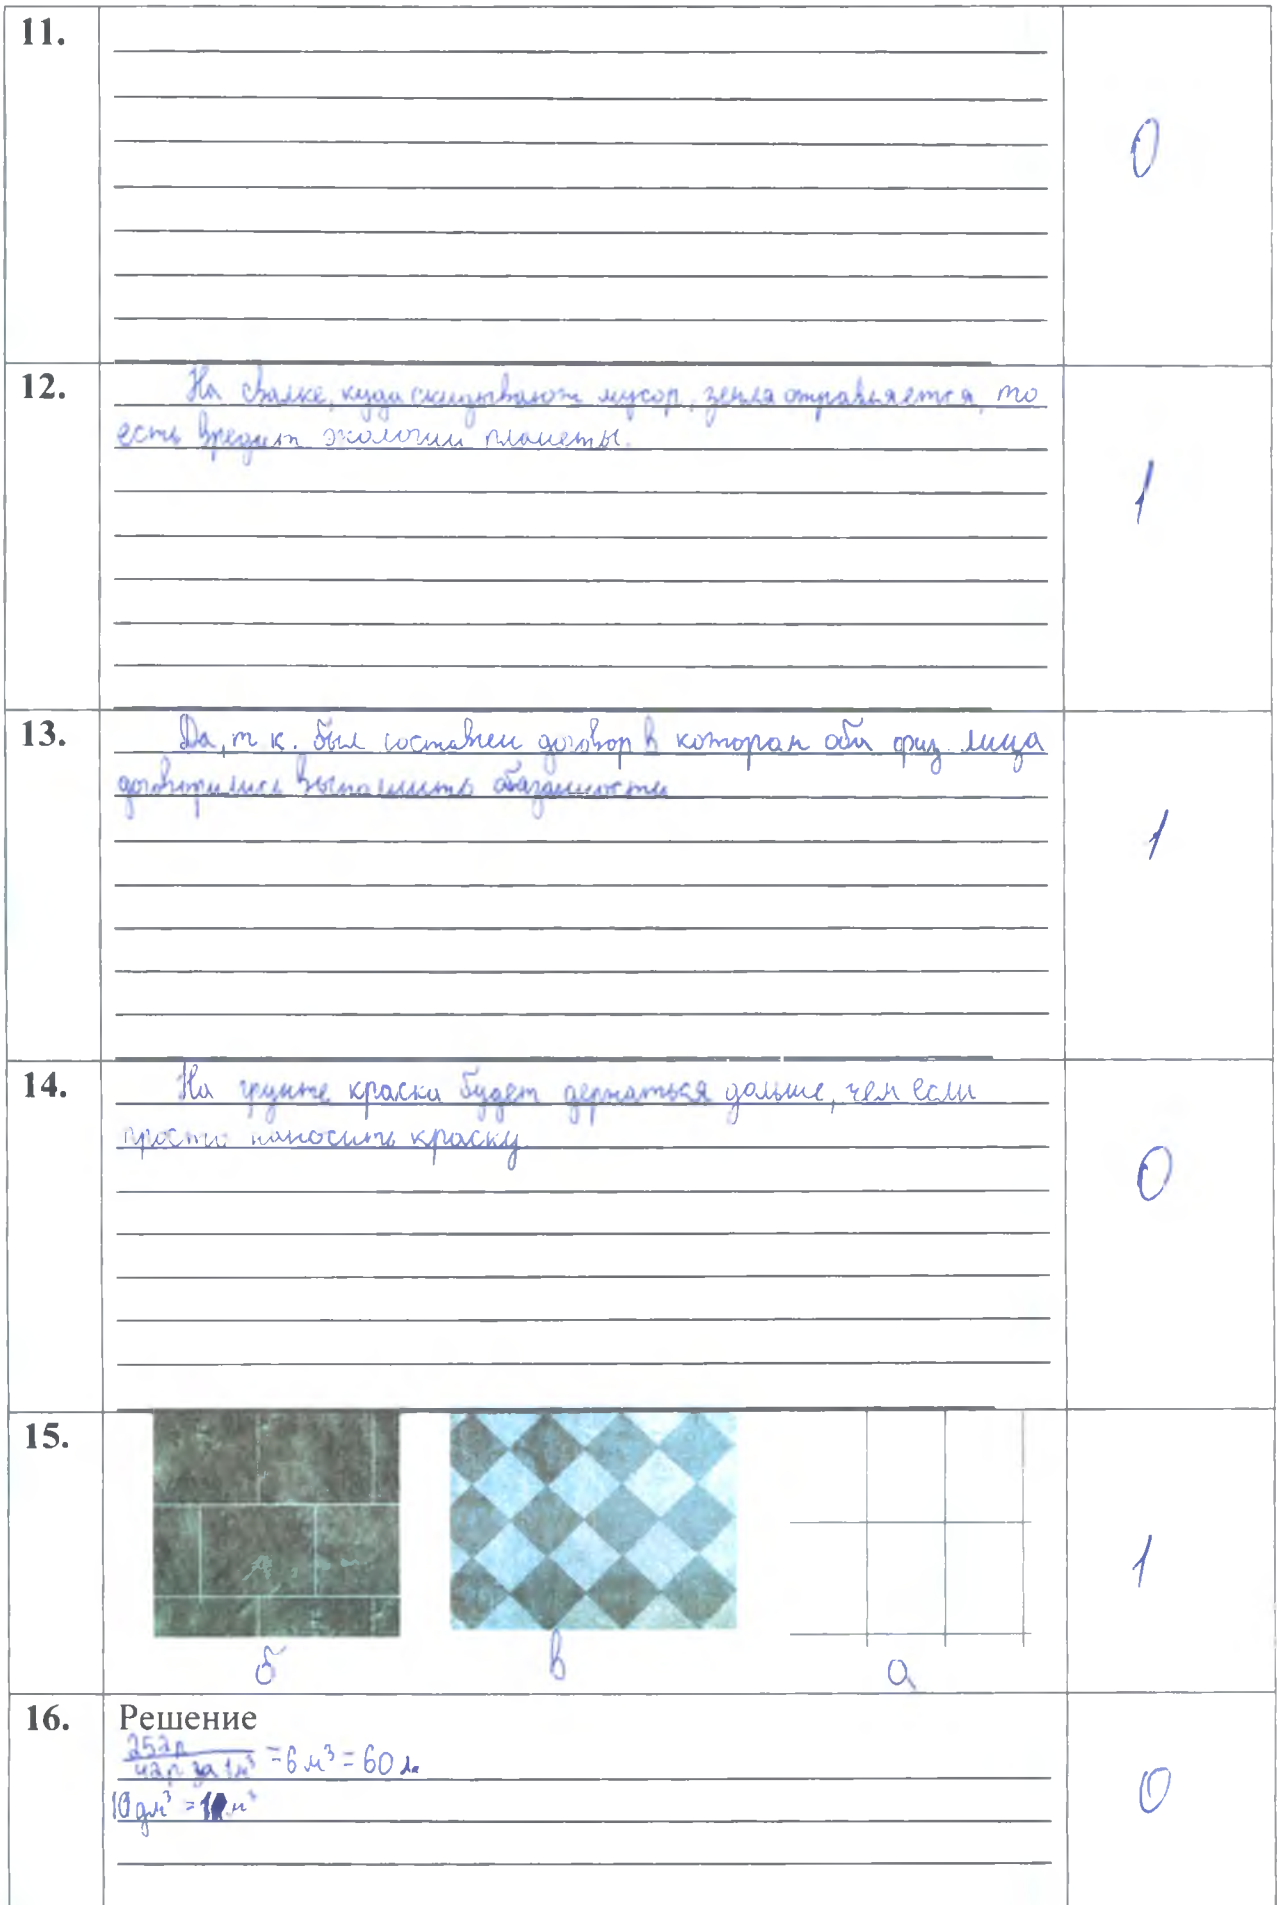 11.
0
12.
На свалке, куда скидывают мусор, земля отравляется, то
есть вредит экологии планеты.
1
13.
Да, т к. был составлен договор в которам оба физ. лица
договорились выполнить обязанности
1
14.
На грунте краска будет держаться дольше, чем если
просто наносить краску.
0
15.
б в а
1
16.
Решение
252р / 42р за 1м³ = 6 м³ = 60 л
10 дм³ = 1 м³
0